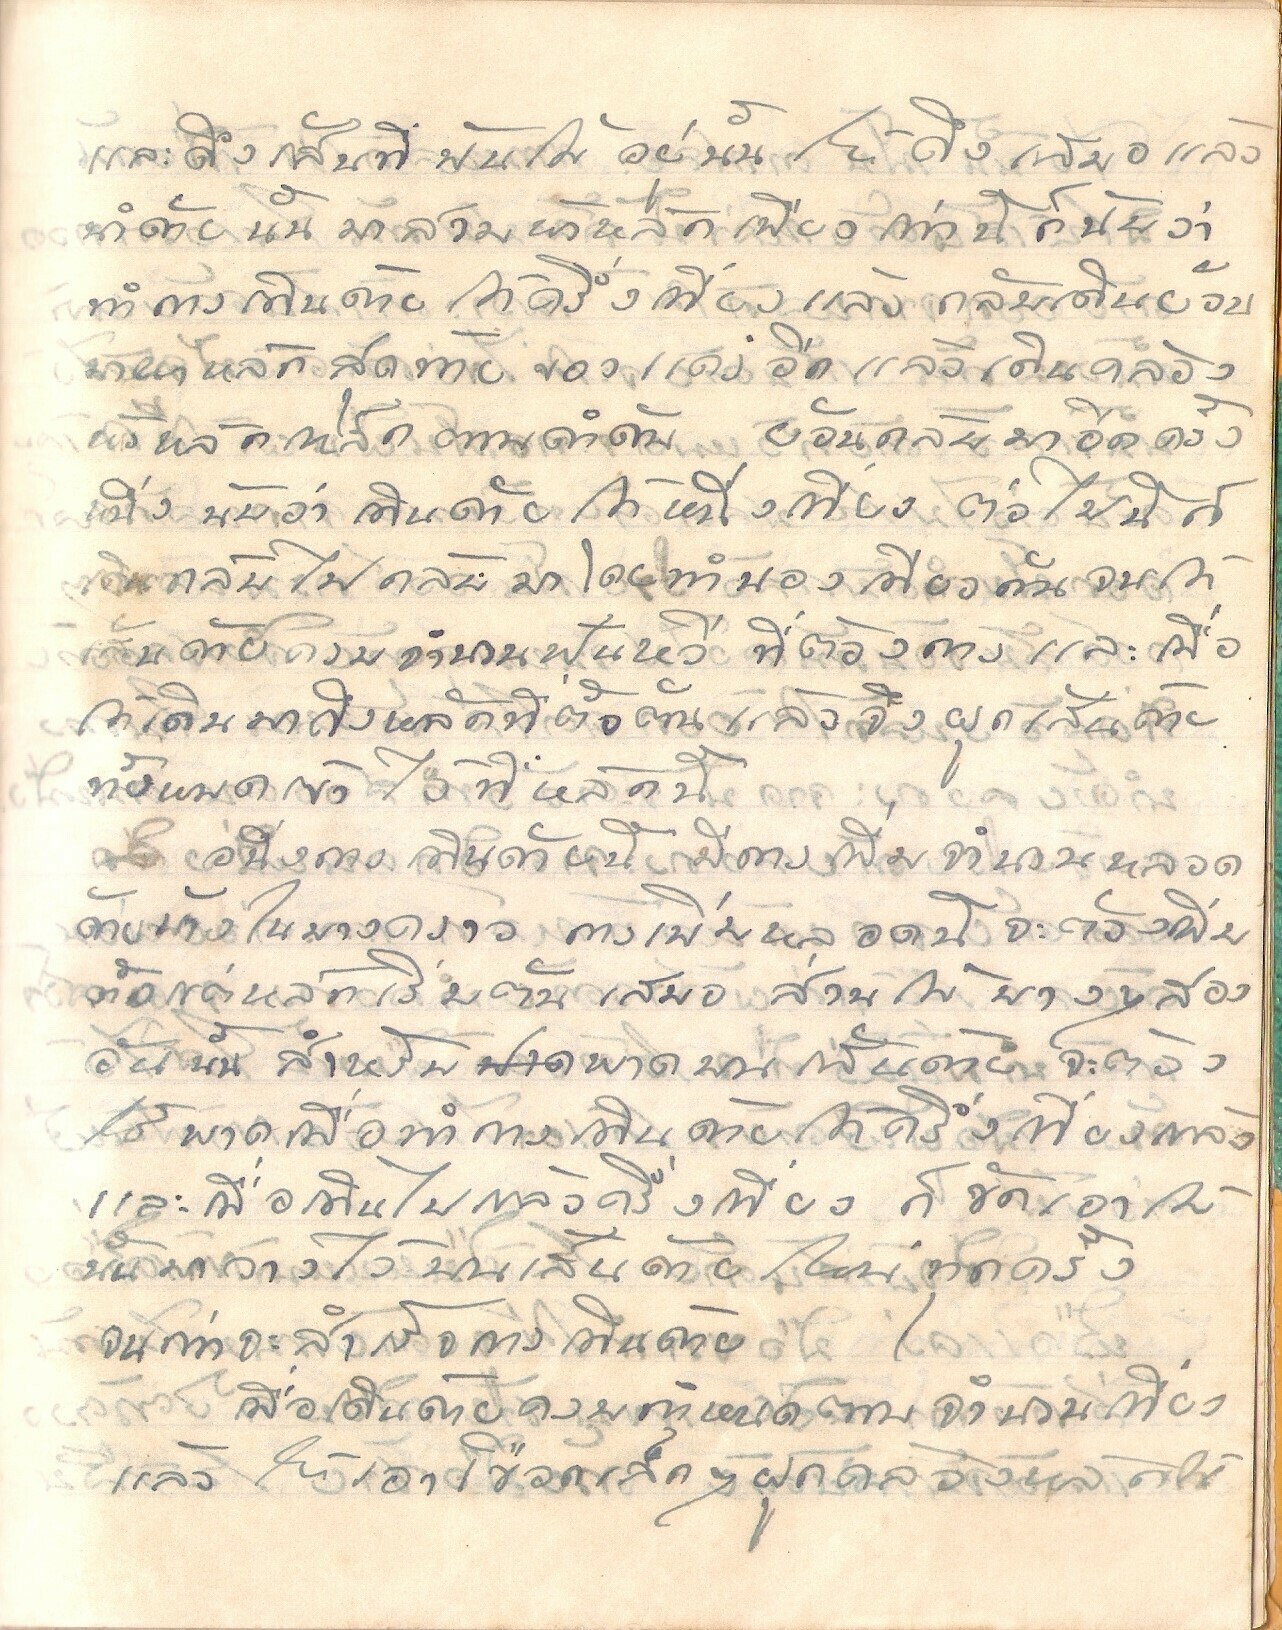 และดึงเส้นที่พันไม้อยู่นั้น ให้ตึงเสมอแล้ว
นำด้ายนั้นมาสวมเข้าหลักเพียงเท่านี้ก็นับว่า
ทำการเดินด้ายได้ครึ่งเที่ยวแล้ว กลับเดินย้อน
มาหาหลักสุดท้าย ของแคร่อีก แล้วเดินคล้อง
หลักเล็กตามลำดับ ย้อนกลับมาอีกครั้ง
หนึ่ง นับว่าเดินด้ายได้หนึ่งเที่ยว ต่อไปนี้ก็
เดินกลับไปกลับมาโดยทำนองเดียวกันจนได้
เส้นด้ายครบจำนวนฟันหวี ที่ต้องการ และเมื่อ
ได้เดินมาถึงหลักที่ตั้งต้นแล้วจึงผูกเส้นด้าย
ทั้งหมดเข้าไว้ที่หลักนี้
อนึ่งการเดินด้ายนี้ มีการเพิ่มจำนวนหลอด
ด้ายบ้างในบางคราว การเพิ่มหลอดนี้จะต้องเพิ่ม
ตั้งแต่หลักเริ่มต้นเสมอ ส่วนไม้บางๆสอง
อันนั้น สำหรับพาดบนเส้นด้าย จะต้อง
ใช้พาดเมื่อทำการเดินด้ายได้ครึ่งเที่ยวแล้ว
และเมื่อเดินไปแล้วครึ่งเที่ยว ก็ชักเอาไม้
นั้นมาวางไว้บนเส้นด้ายใหม่ทุกครั้ง
จนกว่าจะสำเร็จการเดินด้าย
เมื่อเดินด้ายครบกำหนดตามจำนวนเที่ยว
แล้ว ให้เอาเชือกเล็กๆผูกคล้องหลักไว้